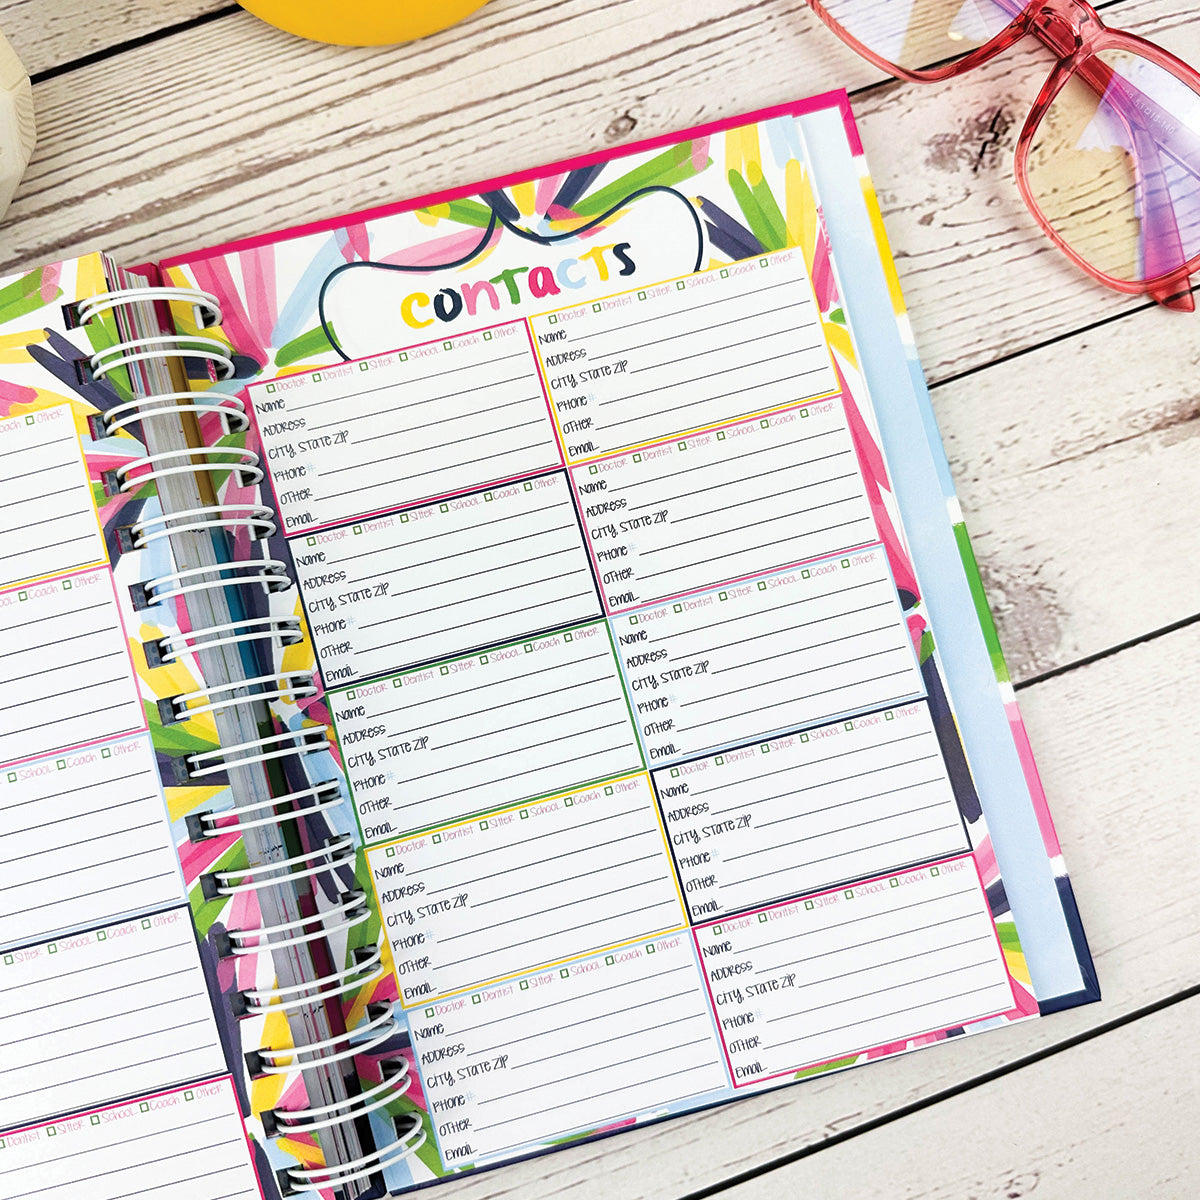 Coach Other
Coach Other
School Coach Other
Sitter School Coach Other
Dentist Sitter School Coach Other
Contacts
Doctor Dentist Sitter School Coach Other
Name
Address
City, State Zip
Phone #
Other
Email
Doctor Dentist Sitter School Coach Other
Name
Address
City, State Zip
Phone #
Other
Email
Doctor Dentist Sitter School Coach Other
Name
Address
City, State Zip
Phone #
Other
Email
Doctor Dentist Sitter School Coach Other
Name
Address
City, State Zip
Phone #
Other
Email
Doctor Dentist Sitter School Coach Other
Name
Address
City, State Zip
Phone #
Other
Email
Doctor Dentist Sitter School Coach Other
Name
Address
City, State Zip
Phone #
Other
Email
Doctor Dentist Sitter School Coach Other
Name
Address
City, State Zip
Phone #
Other
Email
Doctor Dentist Sitter School Coach Other
Name
Address
City, State Zip
Phone #
Other
Email
Doctor Dentist Sitter School Coach Other
Name
Address
City, State Zip
Phone #
Other
Email
Doctor Dentist Sitter School Coach Other
Name
Address
City, State Zip
Phone #
Other
Email